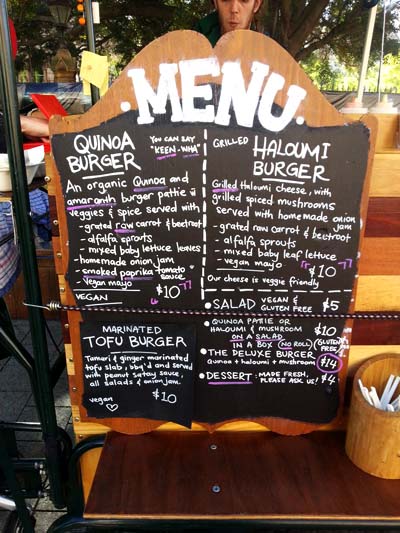 MENU
QUINOA
BURGER
YOU CAN SAY
"KEEN-WHA"
An organic Quinoa and
amaranth burger pattie w
veggies & spice served with
- grated raw carrot & beetroot
- alfalfa sprouts
- mixed baby leaf lettuce leaves
- homemade onion jam
- smoked paprika tomato sauce
- Vegan mayo
VEGAN $10
GRILLED HALOUMI
BURGER
Grilled Haloumi cheese, with
grilled spiced mushrooms
served with homemade onion jam
- grated raw carrot & beetroot
- alfalfa sprouts
- mixed baby leaf lettuce
- vegan mayo $10
Our cheese is veggie friendly
SALAD VEGAN & GLUTEN FREE $5
QUINOA PATTIE OR
HALOUMI & MUSHROOM
ON A SALAD
IN A BOX (NO ROLL) $10 (GLUTEN FREE)
THE DELUXE BURGER $14
Quinoa + haloumi + mushroom
DESSERT: MADE FRESH,
PLEASE ASK US! $4
MARINATED
TOFU BURGER
Tamari & ginger marinated
tofu slab, bbq'd and served
with peanut satay sauce,
all salads & onion jam.
vegan $10